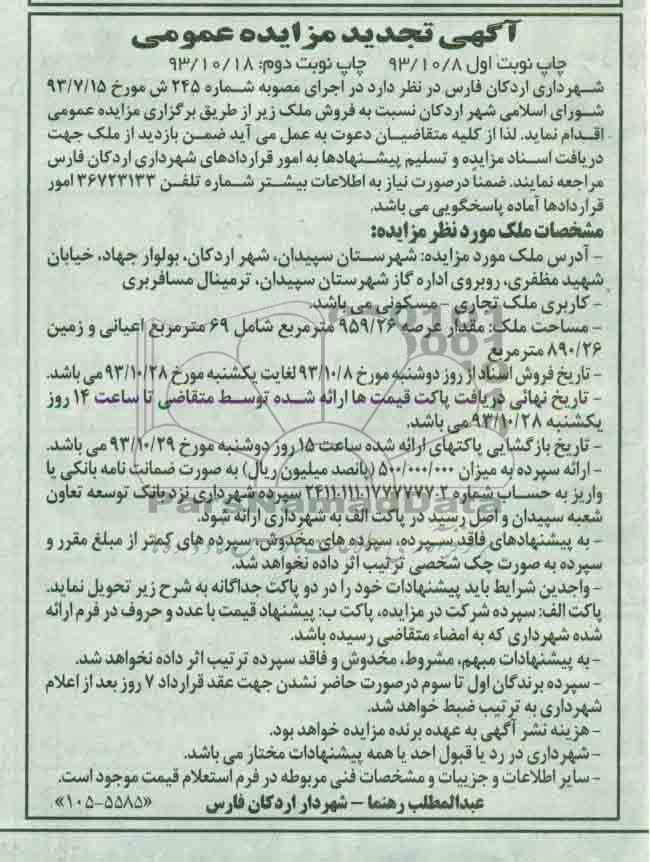 آگهی تجدید مزایده عمومی
چاپ نوبت اول ۹۳/۱۰/۸ چاپ نوبت دوم: ۹۳/۱۰/۱۸
شهرداری اردکان فارس در نظر دارد در اجرای مصوبه شماره ۲۴۵ ش مورخ ۹۳/۷/۱۵
شورای اسلامی شهر اردکان نسبت به فروش ملک زیر از طریق برگزاری مزایده عمومی
اقدام نماید. لذا از کلیه متقاضیان دعوت به عمل می آید ضمن بازدید از ملک جهت
دریافت اسناد مزایده و تسلیم پیشنهادها به امور قراردادهای شهرداری اردکان فارس
مراجعه نمایند. ضمنا درصورت نیاز به اطلاعات بیشتر شماره تلفن ۳۶۷۲۳۱۳۳ امور
قراردادها آماده پاسخگویی می باشد.
مشخصات ملک مورد نظر مزایده:
- آدرس ملک مورد مزایده: شهرستان سپیدان، شهر اردکان، بولوار جهاد، خیابان
شهید مظفری، روبروی اداره گاز شهرستان سپیدان، ترمینال مسافربری
- کاربری ملک تجاری - مسکونی می باشد.
- مساحت ملک: مقدار عرصه ۹۵۹/۲۶ مترمربع شامل ۶۹ مترمربع اعیانی و زمین
۸۹۰/۲۶ مترمربع
- تاریخ فروش اسناد از روز دوشنبه مورخ ۹۳/۱۰/۸ لغایت یکشنبه مورخ ۹۳/۱۰/۲۸ می باشد.
- تاریخ نهائی دریافت پاکت قیمت ها ارائه شده توسط متقاضی تا ساعت ۱۴ روز
یکشنبه ۹۳/۱۰/۲۸ می باشد.
- تاریخ بازگشایی پاکتهای ارائه شده ساعت ۱۵ روز دوشنبه مورخ ۹۳/۱۰/۲۹ می باشد.
- ارائه سپرده به میزان ۵۰۰/۰۰۰/۰۰۰ (پانصد میلیون ریال) به صورت ضمانت نامه بانکی یا
واریز به حساب شماره سپرده شهرداری نزد بانک توسعه تعاون
شعبه سپیدان و اصل رسید در پاکت الف به شهرداری ارائه شود.
- به پیشنهادهای فاقد سپرده، سپرده های مخدوش، سپرده های کمتر از مبلغ مقرر و
سپرده به صورت چک شخصی ترتیب اثر داده نخواهد شد.
- واجدین شرایط باید پیشنهادات خود را در دو پاکت جداگانه به شرح زیر تحویل نماید.
پاکت الف: سپرده شرکت در مزایده، پاکت ب: پیشنهاد قیمت با عدد و حروف در فرم ارائه
شده شهرداری که به امضاء متقاضی رسیده باشد.
- به پیشنهادات مبهم، مشروط، مخدوش و فاقد سپرده ترتیب اثر داده نخواهد شد.
- سپرده برندگان اول تا سوم درصورت حاضر نشدن جهت عقد قرارداد ۷ روز بعد از اعلام
شهرداری به ترتیب ضبط خواهد شد.
- هزینه نشر آگهی به عهده برنده مزایده خواهد بود.
- شهرداری در رد یا قبول احد یا همه پیشنهادات مختار می باشد.
- سایر اطلاعات و جزییات و مشخصات فنی مربوطه در فرم استعلام قیمت موجود است.
عبدالمطلب رهنما - شهردار اردکان فارس «۱۰۵-۵۵۸۵»
ParsNamadData